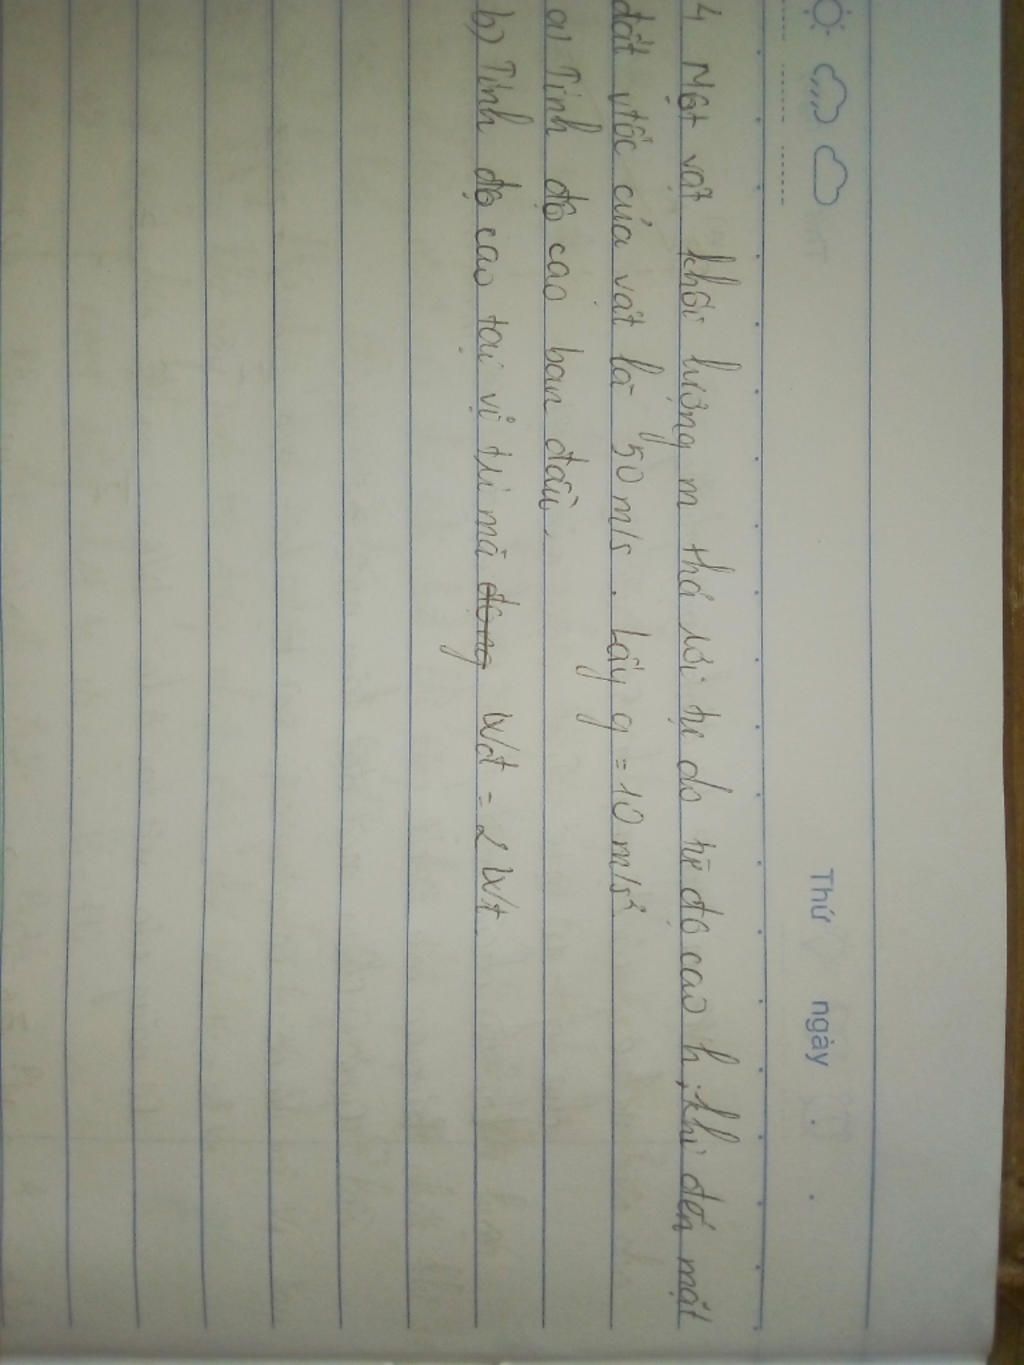 Thứ ngày . .
4 Một vật khối lượng m thả rơi tự do từ độ cao h, khi đến mặt
đất vtốc của vật là 50 m/s . Lấy g = 10 m/s²
a) Tính độ cao ban đầu.
b) Tính độ cao tại vị trí mà động Wđ = 2 Wt